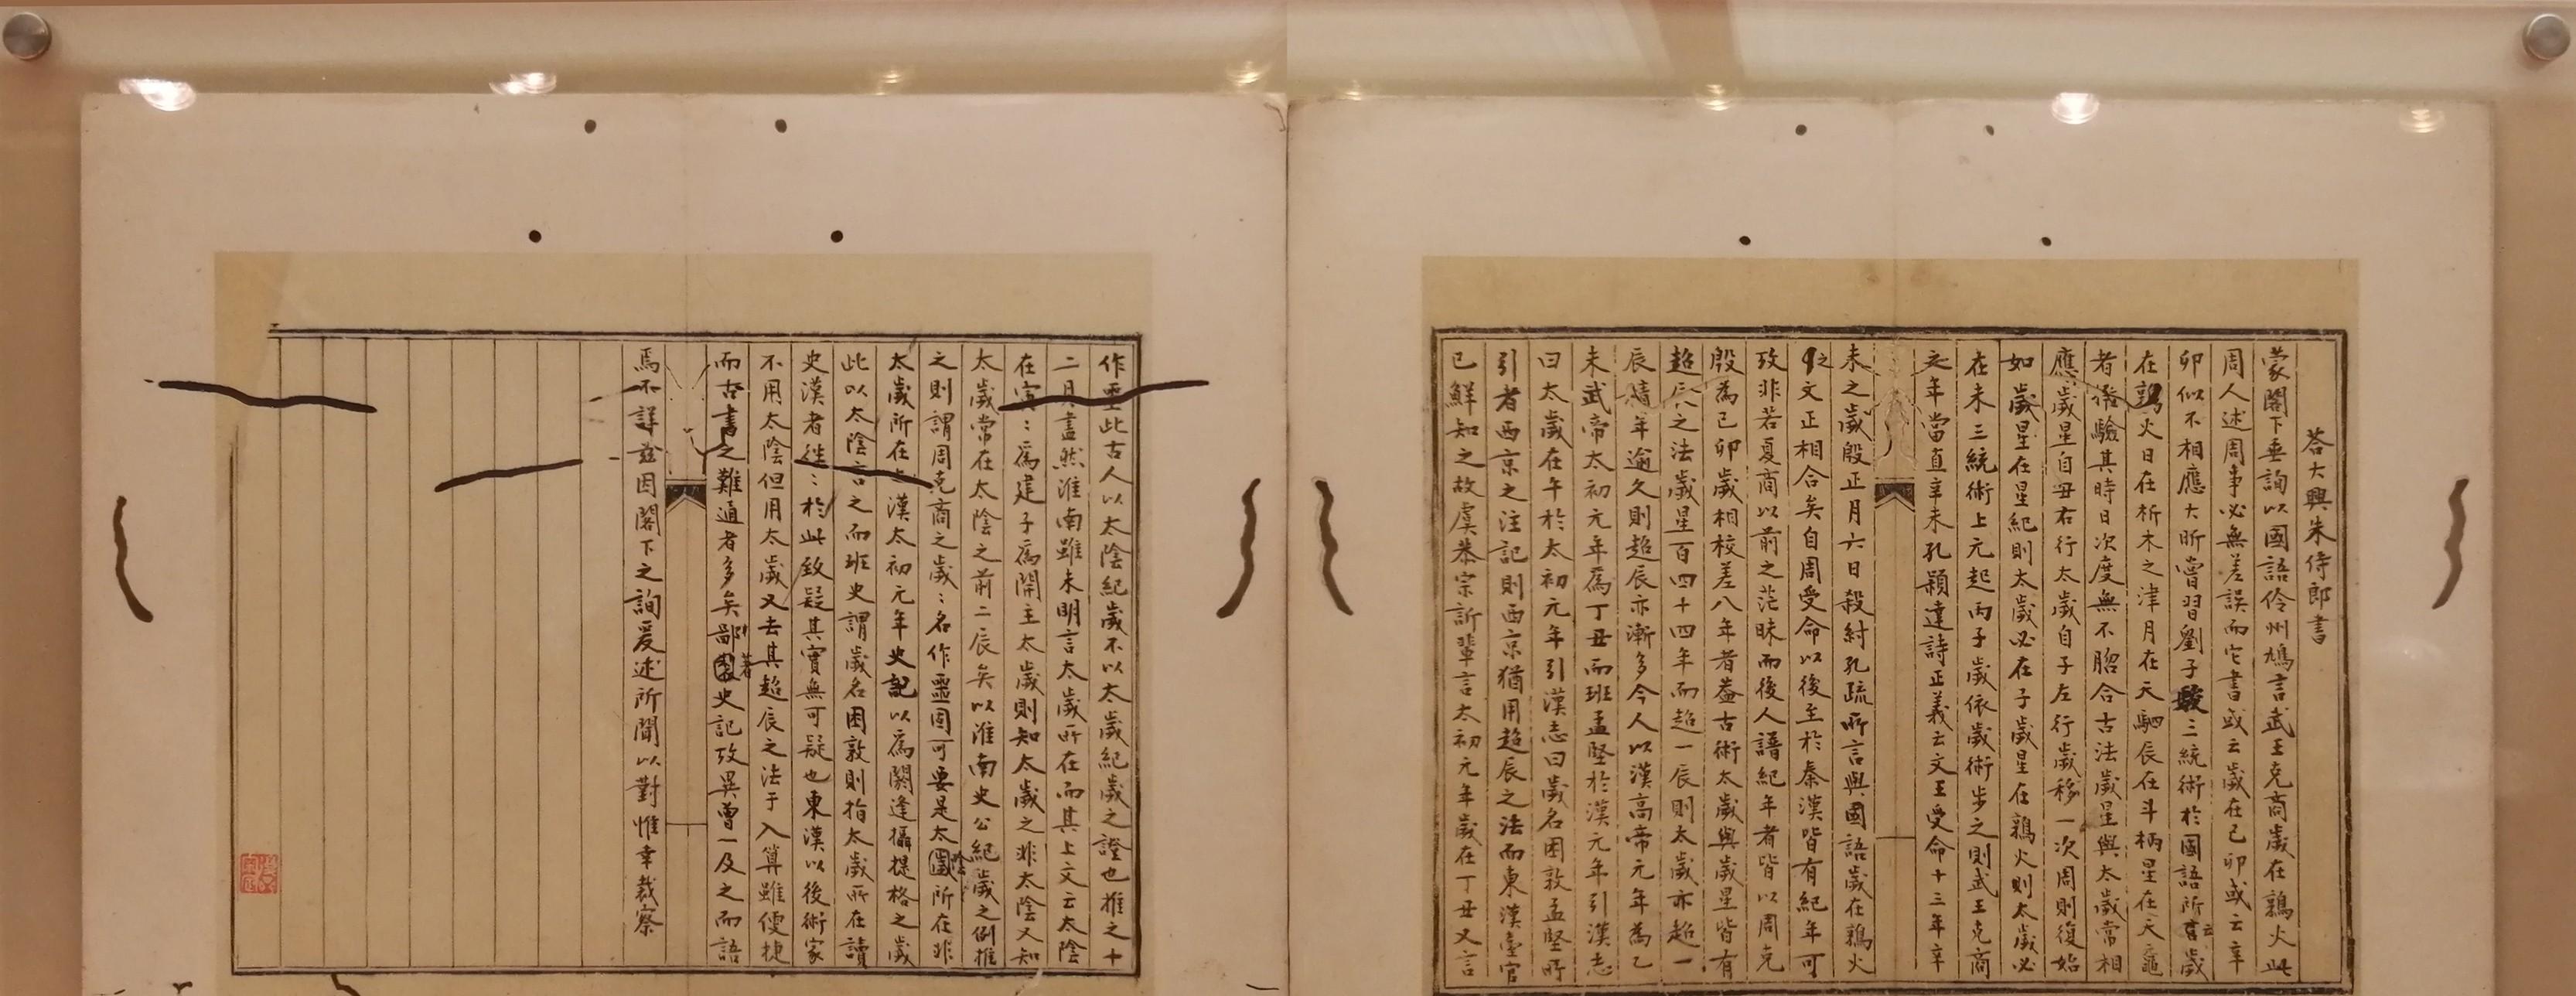 荅大興朱侍郎書
蒙閣下垂詢以國語伶州鳩言武王克商歲在鶉火此
周人述周事必無差誤而它書或云歲在己卯或云辛
卯似不相應大昕嘗習劉子駿三統術於國語所言歲
在鶉火日在析木之津月在天駟辰在斗柄星在天黿
者推驗其時日次度無不脗合古法歲星與太歲常相
應歲星自丑右行太歲自子左行歲移一次周則復始
如歲星在星紀則太歲必在子歲星在鶉火則太歲必
在未三統術上元起丙子歲依歲術步之則武王克商
之年當直辛未孔穎達詩正義云文王受命十三年辛
未之歲殷正月六日殺紂孔疏所言與國語歲在鶉火
之文正相合矣自周受命以後至於秦漢皆有紀年可
攷非若夏商以前之茫昧而後人譜紀年者皆以周克
殷為己卯歲相校差八年者葢古術太歲與歲星皆有
超辰之法歲星百四十四年而超一辰則太歲亦超一
辰積年逾久則超辰亦漸多今人以漢高帝元年為乙
未武帝太初元年為丁丑而班孟堅於漢元年引漢志
曰太歲在午於太初元年引漢志曰歲名困敦孟堅所
引者西京之注記則西京猶用超辰之法而東漢臺官
已鮮知之故虞恭宗訢輩言太初元年歲在丁丑又言
作噩此古人以太陰紀歲不以太歲紀歲之證也推之十
二月盡然淮南雖未明言太歲所在而其上文云太陰
在寅:為建子為開主太歲則知太歲之非太陰又知
太歲常在太陰之前二辰矣以淮南史公紀歲之例推
之則謂周克商之歲:名作噩固可要是太陰所在非
太歲所在也漢太初元年史記以為閼逢攝提格之歲
此以太陰言之而班史謂歲名困敦則指太歲所在讀
史漢者往:於此致疑其實無可疑也東漢以後術家
不用太陰但用太歲又去其超辰之法于入算雖便捷
而古書之難通者多矣鄙著史記攷異曾一及之而語
焉不詳茲因閣下之詢爰述所聞以對惟幸裁察